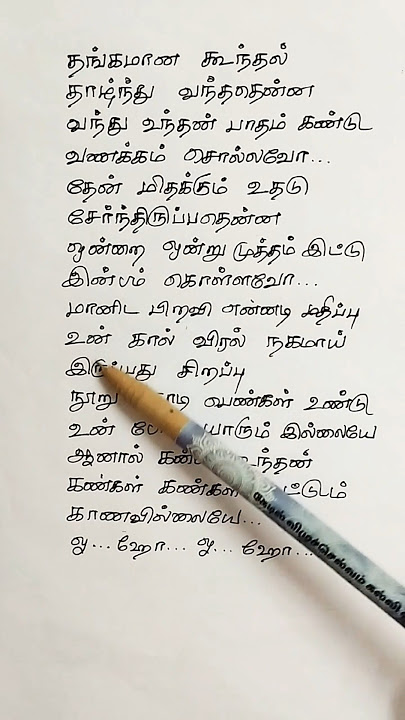 தங்கமான கூந்தல்
தாழ்ந்து வந்ததென்ன
வந்து உந்தன் பாதம் கண்டு
வணக்கம் சொல்லவோ...
தேன் மிதக்கும் உதடு
சேர்ந்திருப்பதென்ன
ஒன்றை ஒன்று முத்தம் இட்டு
இன்பம் கொள்ளவோ...
மானிட பிறவி என்னடி மதிப்பு
உன் கால் விரல் நகமாய்
இருப்பது சிறப்பு
நூறு கோடி பெண்கள் உண்டு
உன் யாரும் இல்லையே
ஆனால் உந்தன்
கண்கள்
காணவில்லையே...
ஓ... ஹோ... ஓ... ஹோ...